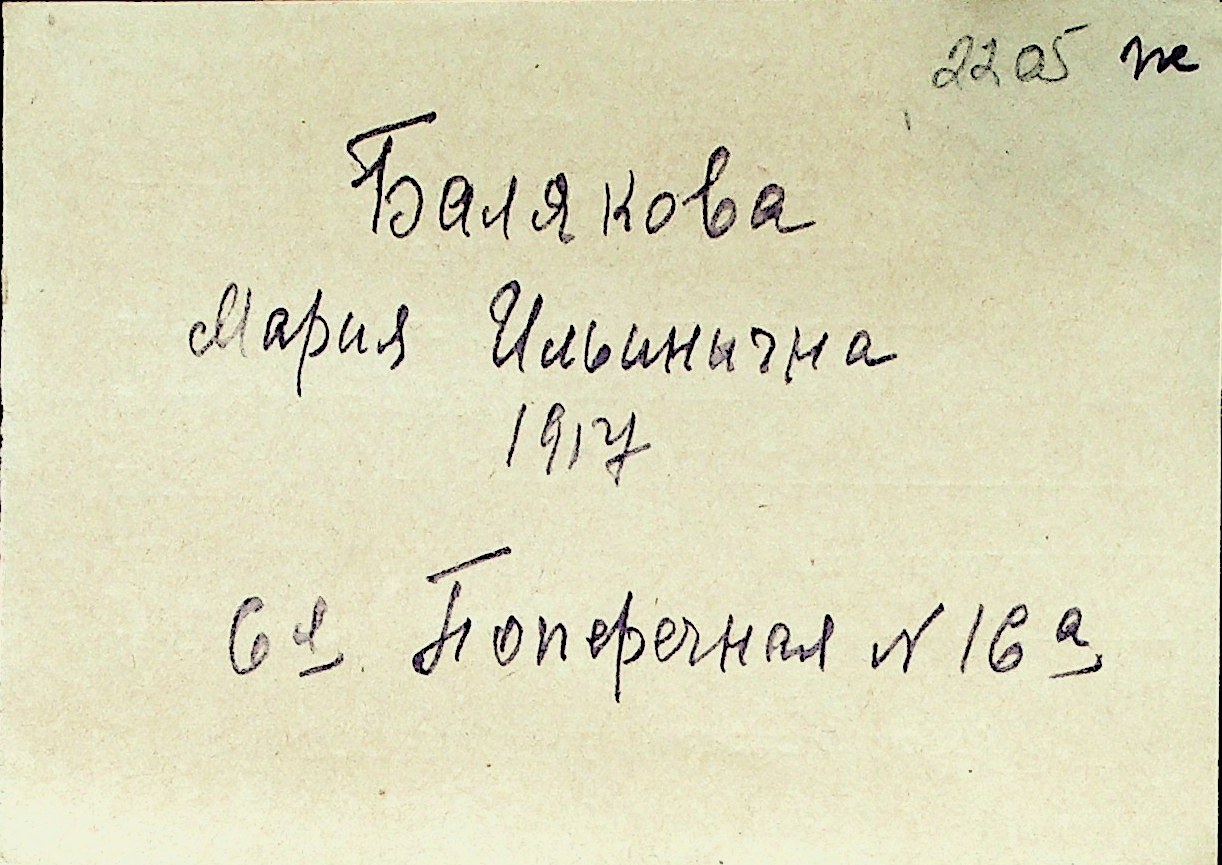 22 об ж
Балякова
Мария Ильинична
1917
6я Поперечная N 16а